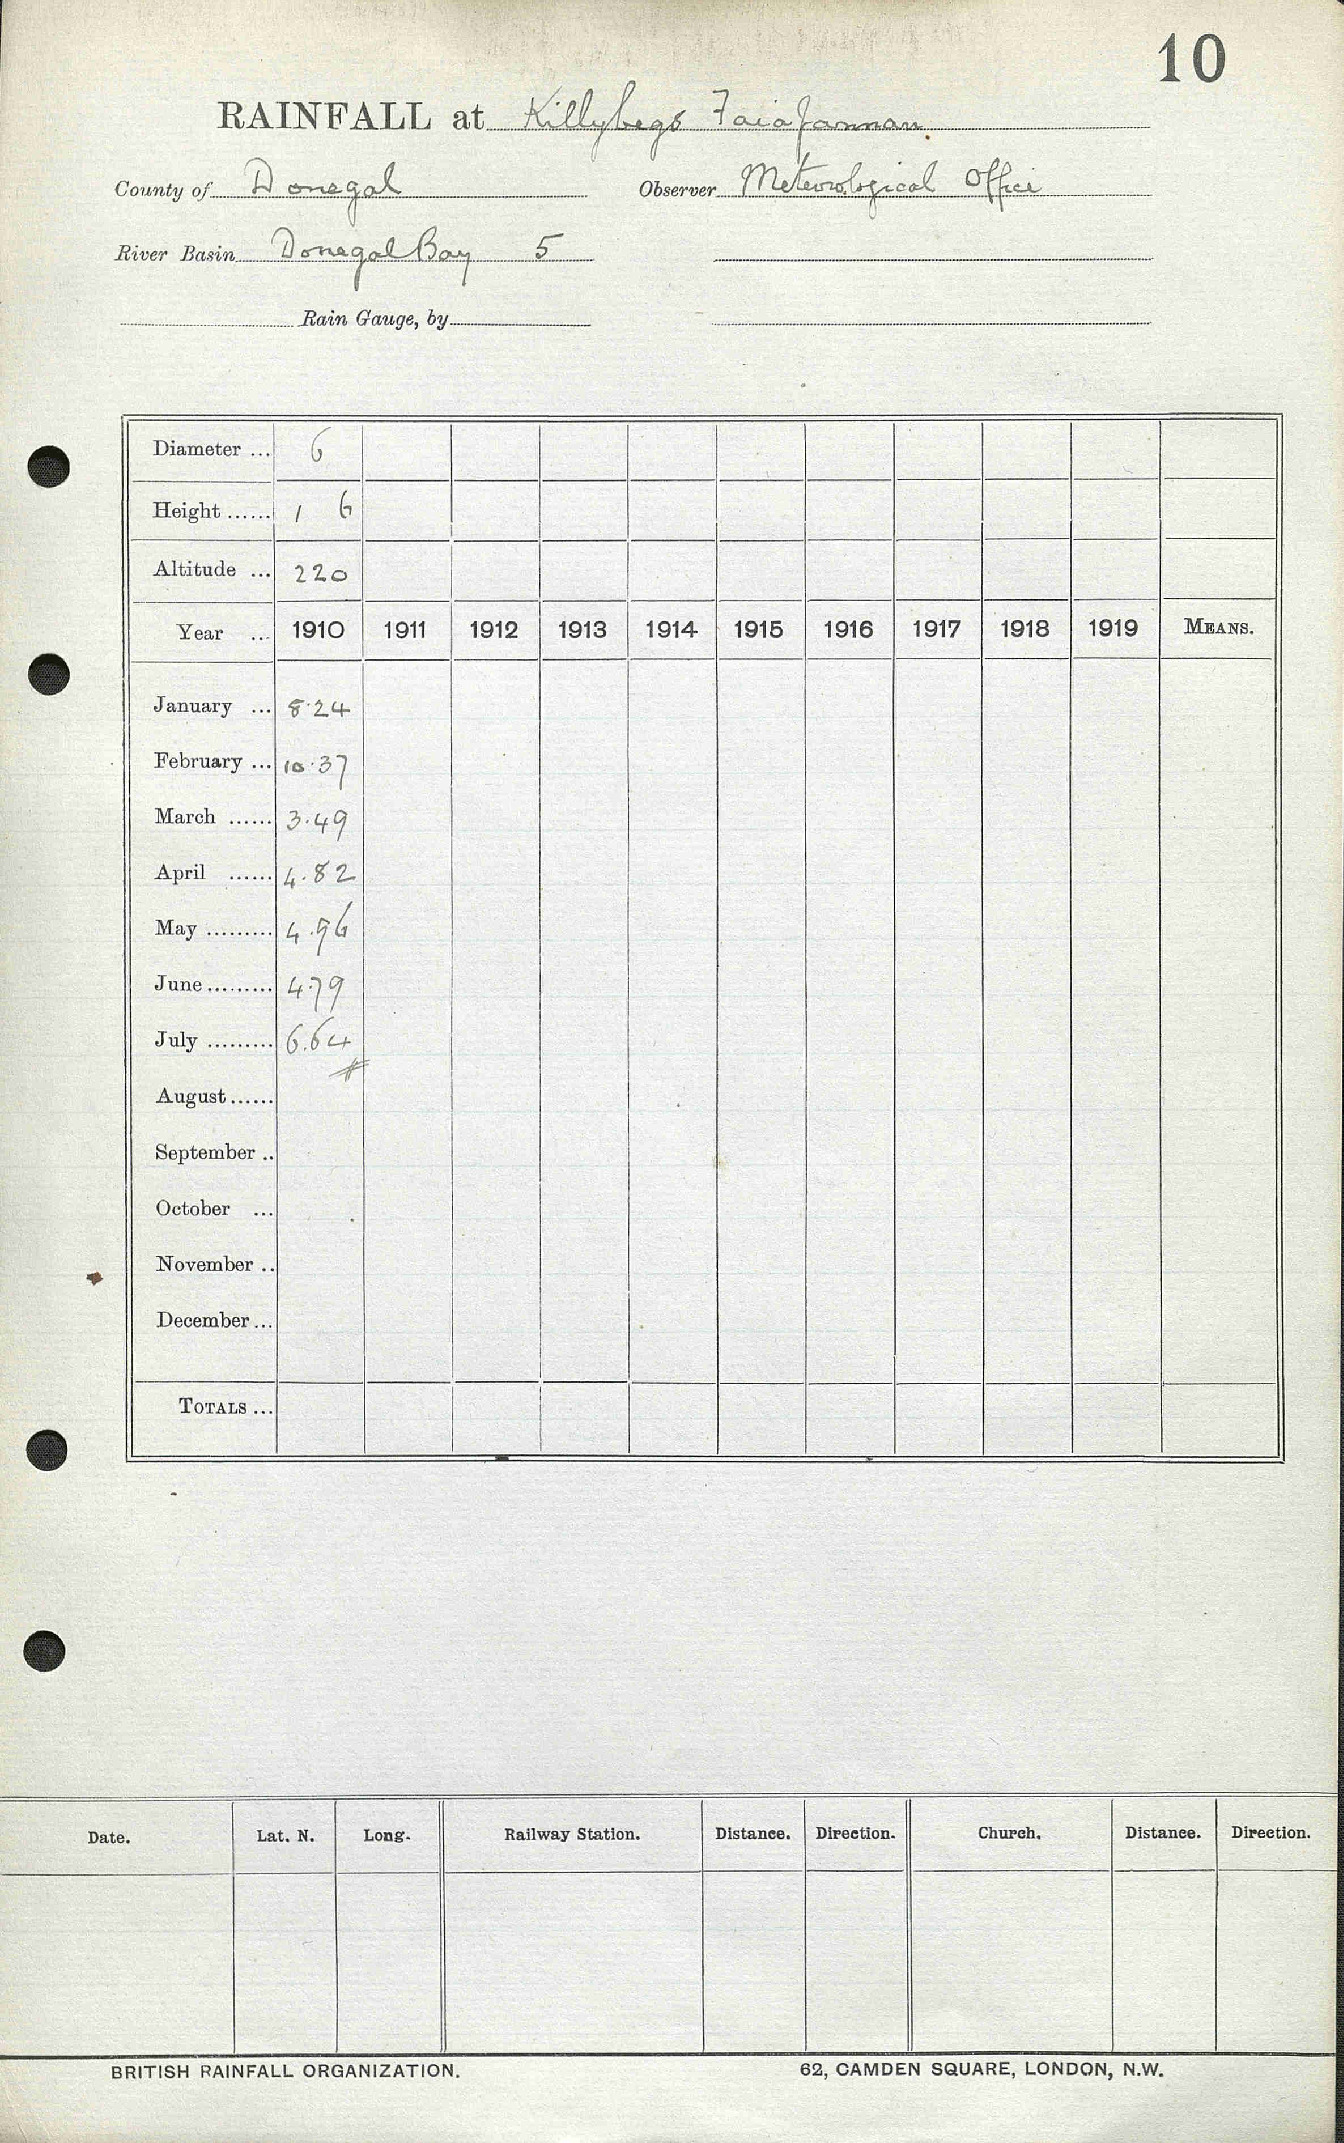 10
RAINFALL at Killybegs
County of Donegal Observer Meteorological Office
River Basin Donegal Bay 5
Rain Gauge, by
Diameter ... 6
Height ...... 1 6
Altitude ... 220
Year ... 1910 1911 1912 1913 1914 1915 1916 1917 1918 1919 MEANS.
January ... 8.24
February ... 10.37
March ...... 3.49
April ...... 4.82
May ......... 4.96
June ......... 4.79
July ......... 6.64
August ......
September ..
October ...
November ..
December ...
TOTALS ...
Date. Lat. N. Long. Railway Station. Distance. Direction. Church. Distance. Direction.
BRITISH RAINFALL ORGANIZATION. 62, CAMDEN SQUARE, LONDON, N.W.